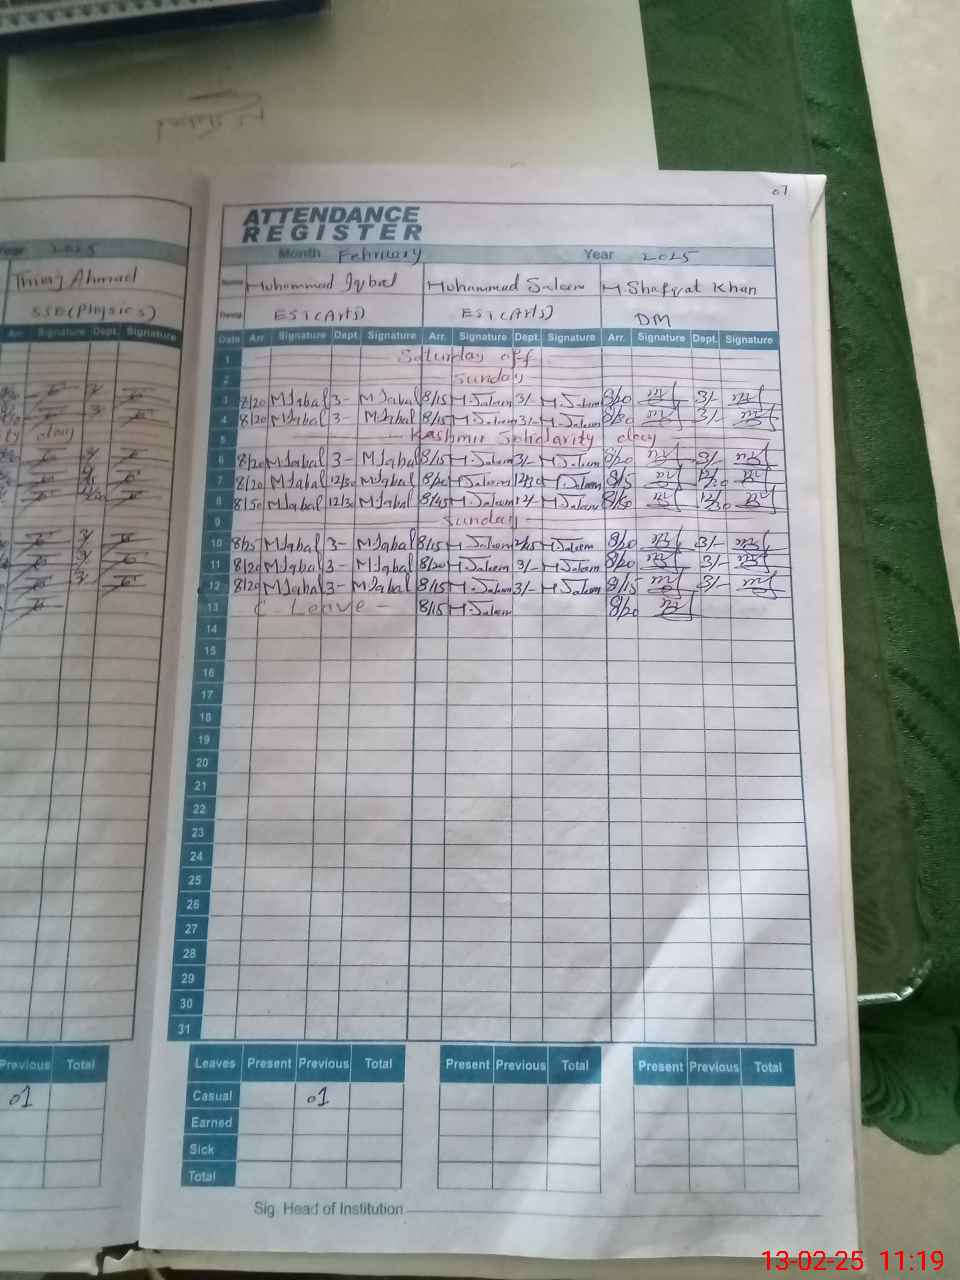 07
ATTENDANCE
REGISTER
Month February Year 2025
Name Muhammad Iqbal Muhammad Saleem M Shafqat Khan
Desig. EST(Arts) EST(Arts) DM
Date Arr. Signature Dept. Signature Arr. Signature Dept. Signature Arr. Signature Dept. Signature
1 Saturday off
2 Sunday
3 8/20 M Iqbal 3- M Iqbal 8/15 M.Saleem 3/- M.Saleem 8/20 3/-
4 8/20 M Iqbal 3- M Iqbal 8/15 M.Saleem 3/- M.Saleem 8/20 3/-
5 Kashmir Solidarity day
6 8/20 M Iqbal 3- M Iqbal 8/15 M.Saleem 3/- M.Saleem 8/20 3/-
7 8/20 M Iqbal 12/30 M Iqbal 8/20 M.Saleem M.Saleem 8/15
8 8/50 M Iqbal 12/30 M Iqbal 8/45 M.Saleem 12/- M.Saleem 8/50 12/30
9 Sunday
10 8/25 M Iqbal 3- M Iqbal 8/15 M.Saleem M.Saleem 8/20 3/-
11 8/20 M Iqbal 3- M Iqbal 8/20 M.Saleem 3/- M.Saleem 8/20 3/-
12 8/20 M Iqbal 3- M Iqbal 8/15 M.Saleem 3/- M.Saleem 8/15 3/-
13 C. Leave - 8/15 M.Saleem 8/20
14
15
16
17
18
19
20
21
22
23
24
25
26
27
28
29
30
31
Leaves Present Previous Total Present Previous Total Present Previous Total
Casual 01
Earned
Sick
Total
Sig. Head of Institution
2025
Ahmad
SSE(Physics)
Arr. Signature Dept. Signature
day
Previous Total
01
13-02-25 11:19